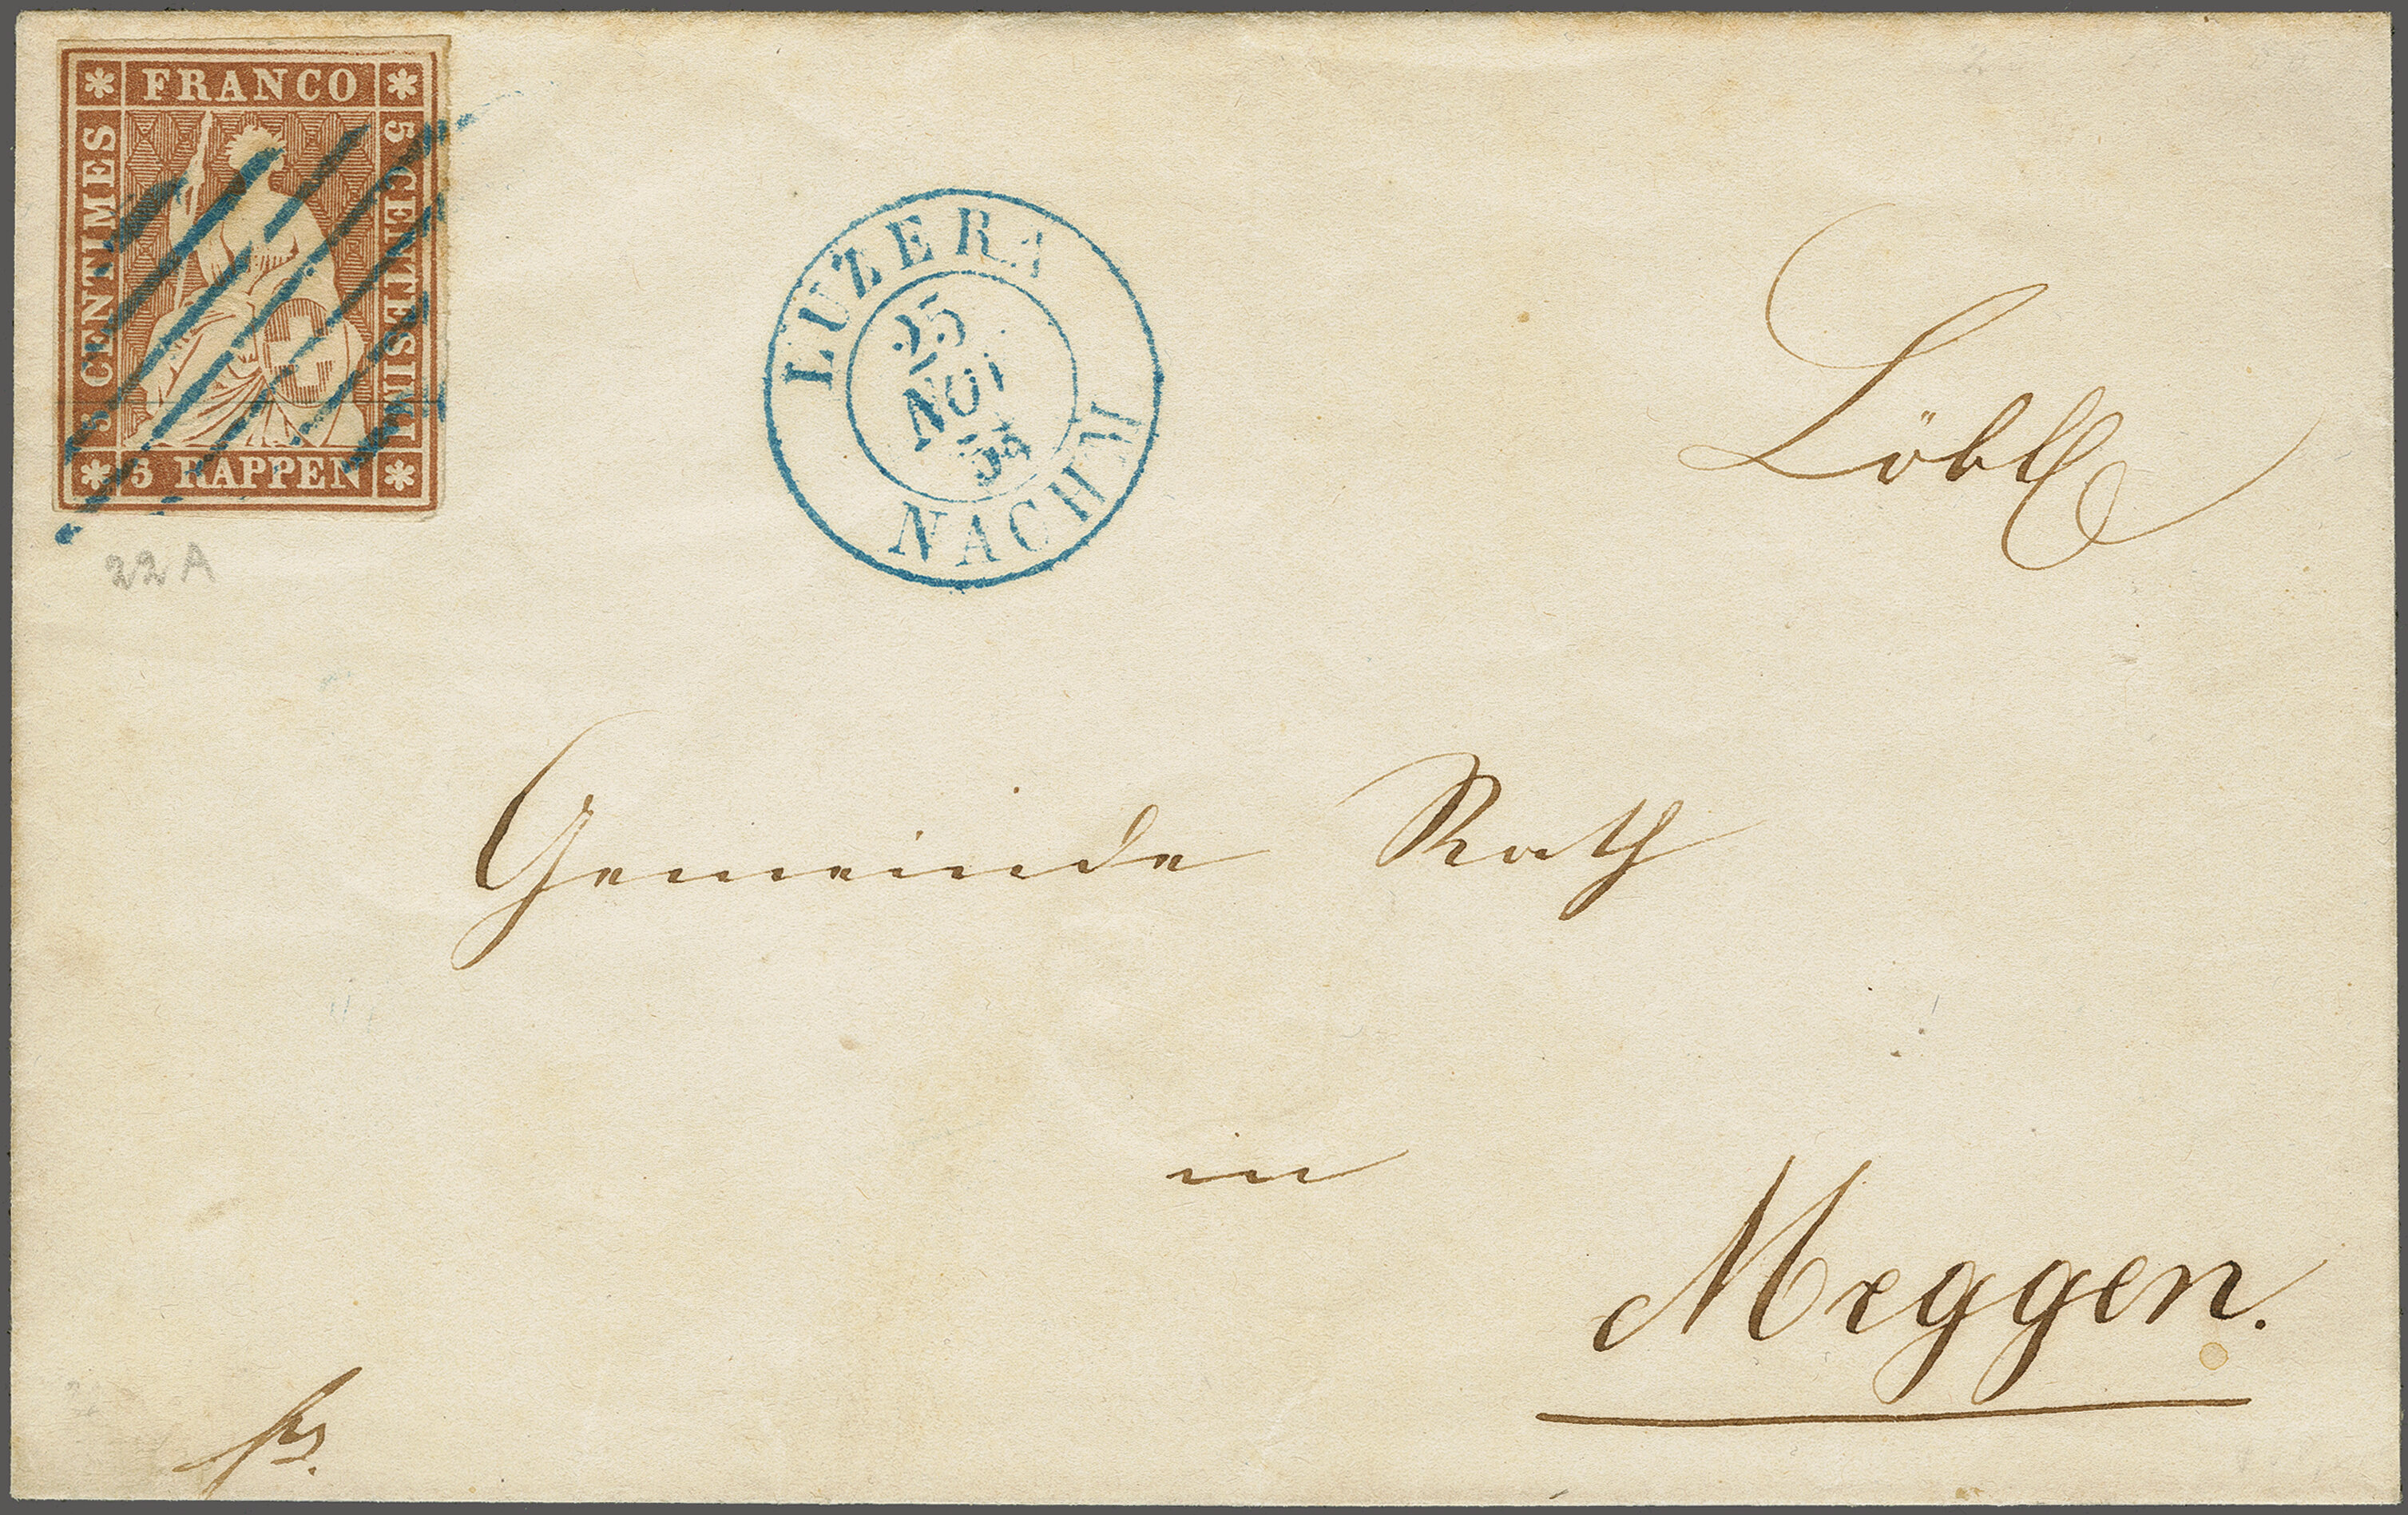 FRANCO
5 CENTIMES
5 CENTESIMI
5 RAPPEN
22A
LUZERN
25
NOV
NACHM
Löbl
Gemeinde Rath
in
Meggen.